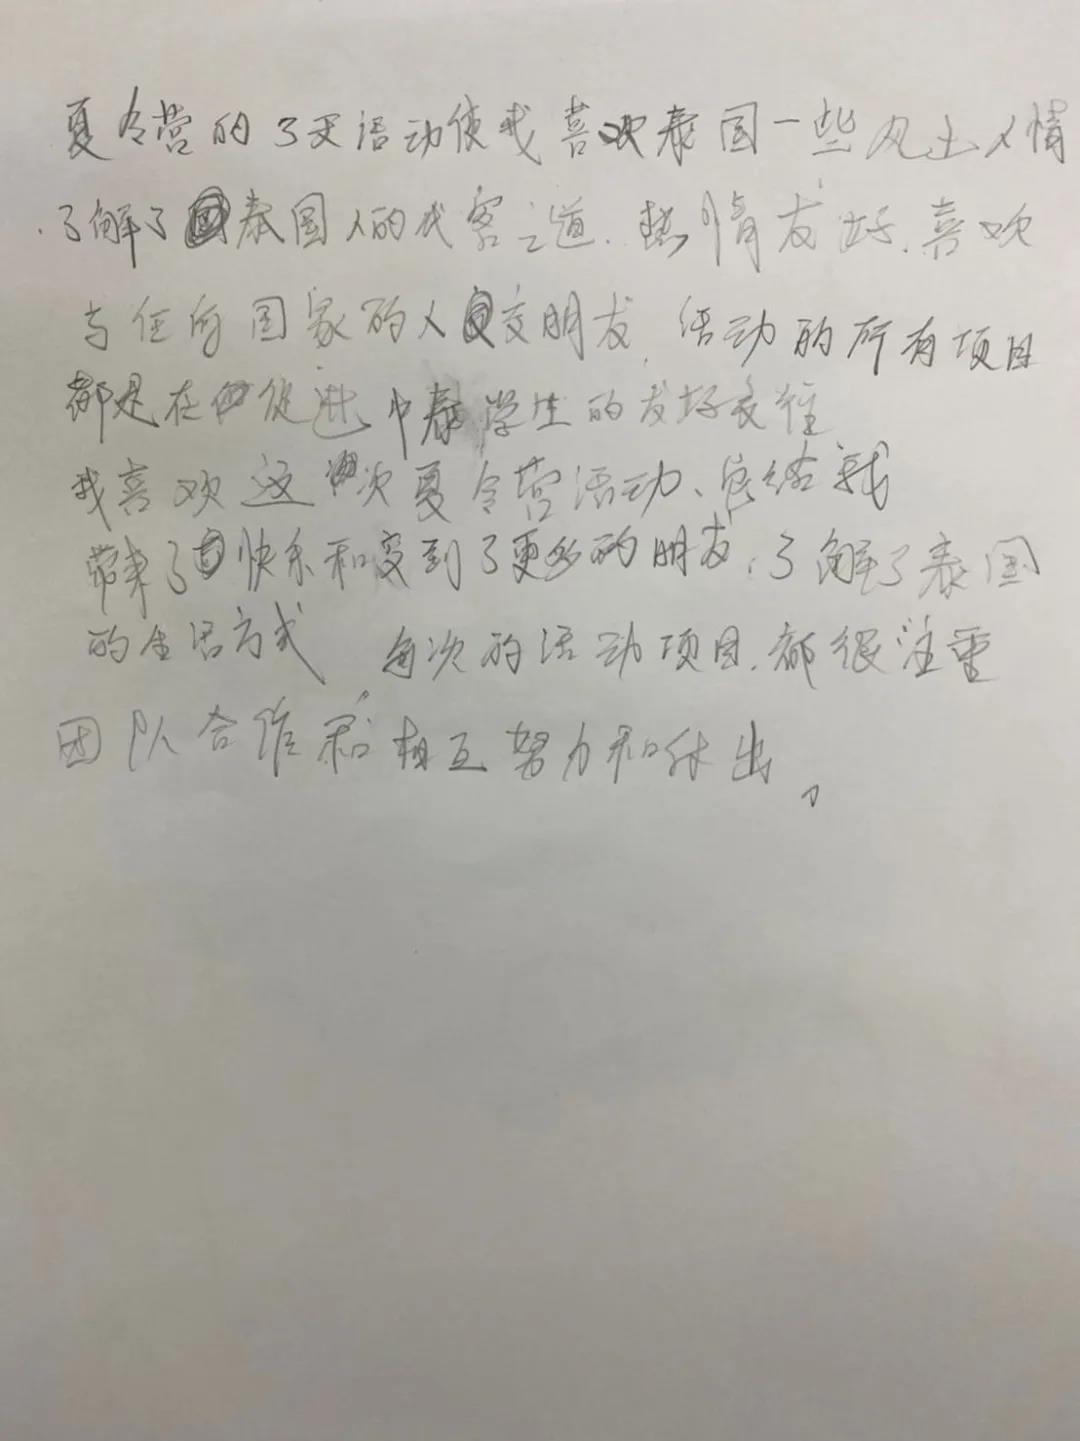 夏令营的3天活动使我喜欢泰国一些风土人情
.了解了泰国人的代客之道.热情友好.喜欢
与任何国家的人交朋友,活动的所有项目
都是在促进中泰学生的友好交往
我喜欢这次夏令营活动、它给我
带来了快乐和交到了更多的朋友,了解了泰国
的生活方式 每次的活动项目.都很注重
团队合作和相互努力和付出。